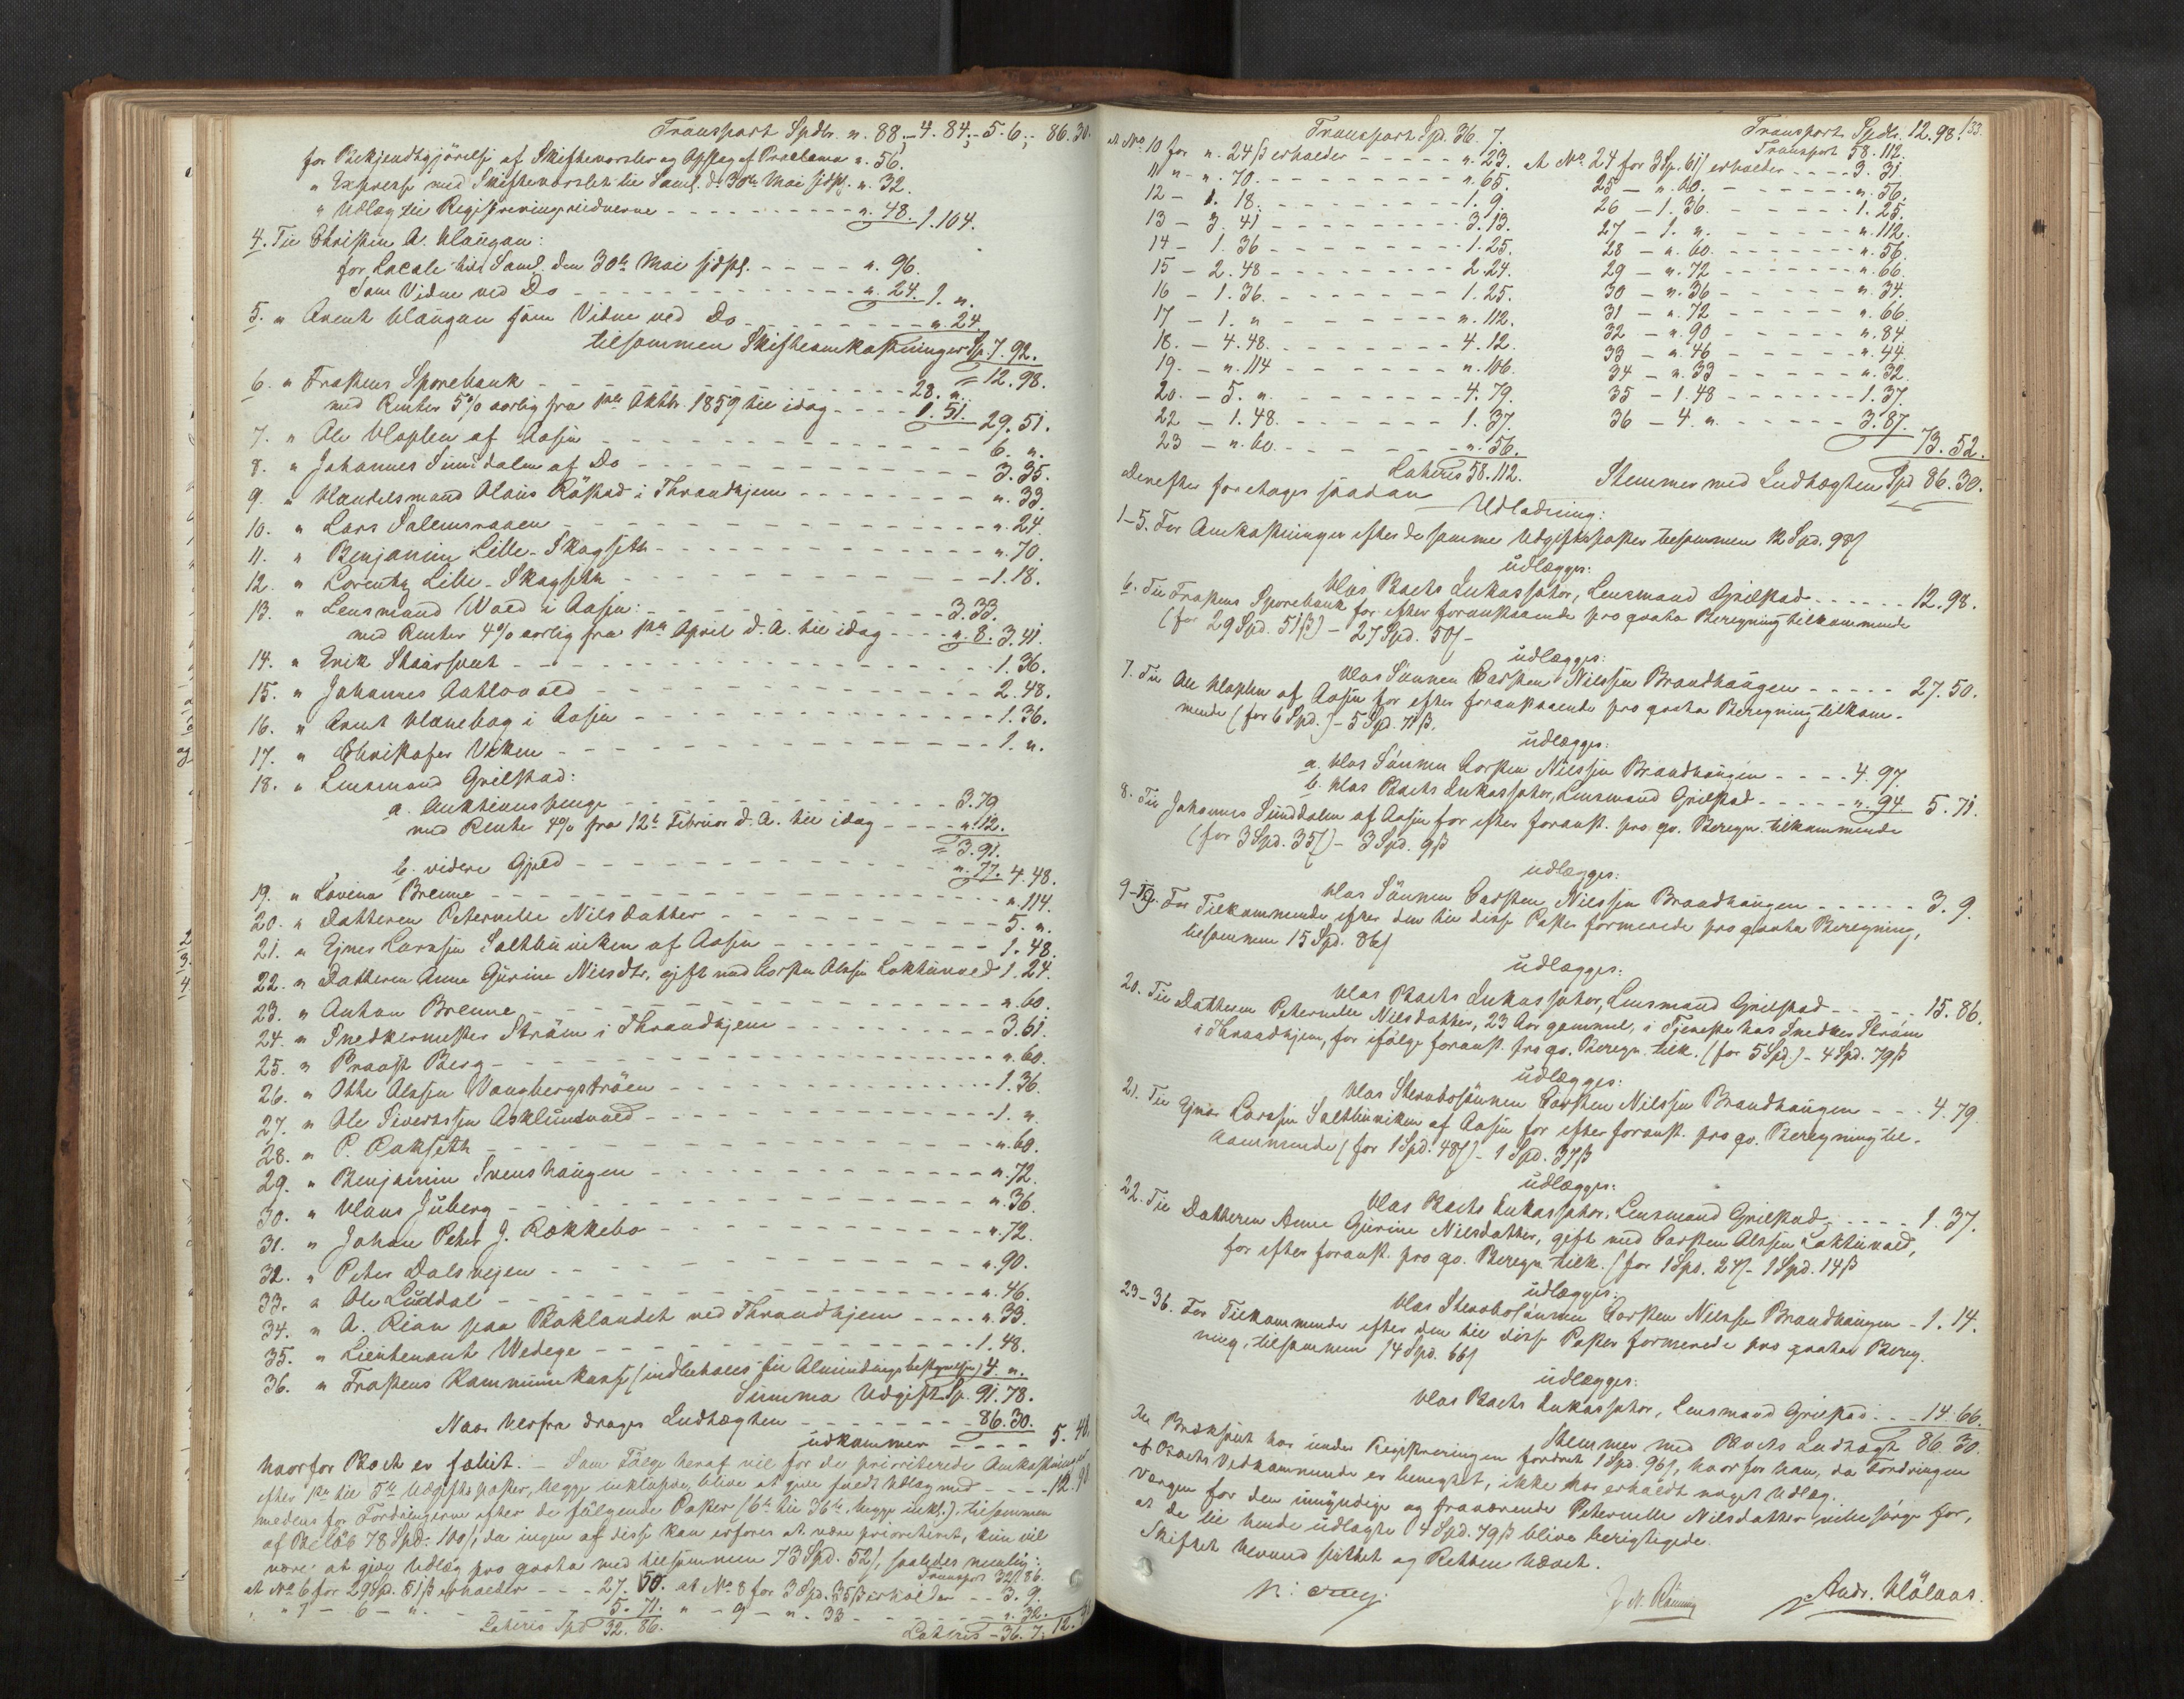 Transport Spdlr. „ 88 ; - 4. 84 ; - 5. 6 ; - 86. 30.
for Bekjendtgjörelse af Skiftevarsler og Opslag af Proclama „. 56.
„ Expresse med Skiftevarslet til Saml. d. 30te Mai sidstl. „. 32.
„ Udlæg til Registreringsvidnerne - - - „. 48. 1. 104.
4. Til Christen A. Haugan:
for Locale till Saml. den 30te Mai sidstl. - - - - „. 96.
som Vidne ved Do - - - „. 24. 1. „.
5. „ Arent Haugan som Vidne ved Do - - - „. 24.
tilsammen Skifteomkostninger Sp. 7. 92.
= 12. 98.
6. „ Frostens Sparebank - - - 28. „.
med Renter 5% aarlig fra 1ste Oktbr. 1859 til idag - - - - 1. 51. 29. 51.
7. „ Ole Hoplen af Aasen - - - 6. „.
8. „ Johannes Sunddalen af Do - - - 3. 35.
9. „ Handelsmand Claus Röstad i Throndhjem - - - „. 33.
10. „ Lars Salemsaaen - - - „. 24.
11. „ Benjamin Lille-Skogseth - - - „. 70.
12. „ Lorentz Lille-Skogseth - - - 1. 18.
13. „ Lensmand Wold i Aasen: - - - 3. 33.
med Renter 4% aarlig fra 1ste April d. A. til idag - - - - „. 8. 3. 41.
14. „ Erik Skaarsvedt - - - 1. 36.
15. „ Johannes - - - 2. 48.
16. „ Arent i Aasen - - - 1. 36.
17. „ Christofer Viken - - - 1. „.
18. „ Lensmand Grilstad:
a. Auktionspenge - - - 3. 79
med Rente 4% fra 12te Februar d. A. til idag - - - - „. 12.
= 3. 91.
b. videre Gjeld - - - „. 77. 4. 48.
19. „ Lovena Brenne - - - „. 114.
20. „ Datteren Peternelle Nilsdatter - - - 5. „.
21. „ Ejner Larssen Saltbuviken af Aasen - - - 1. 48.
22. „ Datteren Anne Gurine Nilsdtr., gift med Carsten Olssen Loktuvold 1. 24.
23. „ Anton Brenne - - - „. 60.
24. „ Snedkermester Ström i Throndhjem - - - 3. 61.
25. „ Provst Berg - - - „. 60.
26. „ Otte Olssen Vangbergströen - - - 1. 36.
27. „ Ole Sivertssen Asklundvald - - - 1. „.
28. „ P. Rokseth - - - „. 60.
29. „ Benjamin Svenshaugen - - - „. 72.
30. „ Hans Juberg - - - „. 36.
31. „ Johan Peter J. Rokkebo - - - „. 72.
32. „ Peter Dalsvejen - - - „. 90.
33. „ Ole Luddal - - - „. 46.
34. „ A. Rian paa Baklandet ved Throndhjem - - - - „. 33.
35. „ Lieutenant Wedege - - - 1. 48.
36. „ Frostens Kommunekasse (indbetales til Almindingsbestyrelsen) 4. „.
Summa Udgift Sp. 91. 78.
Naar herfra drages Indtægten - - - 86. 30.
udkommer - - - - 5. 48.
hvorfor Boet er falit. - Som Følge heraf vil for de prioriterede Omkostninger
efter 1ste til 5te Udgiftsposter, begge inklusive, blive at give fuldt Udlæg med - - - - 12. 98.
medens for Fordringerne efter de fölgende Poster (6te til 36te, begge inkl.), tilsammen
af Belöb 78 Spd. 100 s, da ingen af disse kan erfares at være prioriteret, kun vil
være at give Udlæg pro qvota med tilsammen 73 Spd. 52 s, saaledes nemlig:
Transport 32. 86.
at No 6 for 29 Spd. 51 ß erholder - - - 27. 50. at No 8 for 3 Spd. 35 ß erholder - - 3. 9.
„ „ 7 - 6 - „. - - - 5. 71. „ - 9 - „. 33 - - - „. 32.
Lateris Spd 32. 86. Lateris - 36. 7. 12. 98.
133.
Transport Sp. 36. 7. Transport Spdlr. 12. 98.
Transport 58. 112.
at No 10 for „. 24 ß erholder - - - - - „. 23. at No 24 for 3 Sp. 61 s erholder - - - - 3. 31.
11 „ - „. 70. - - - „. 65. 25 - „. 60. - - - „. 56.
12 - 1. 18. - - - 1. 9. 26 - 1. 36. - - - 1. 25.
13 - 3. 41 - - - 3. 13. 27 - 1. „. - - - „. 112.
14 - 1. 36 - - - 1. 25. 28 - „. 60. - - - „. 56.
15 - 2. 48 - - - 2. 24. 29 - „. 72 - - - „. 66.
16 - 1. 36. - - - 1. 25. 30 - „. 36 - - - „. 34.
17 - 1. „ - - - „. 112. 31 - „. 72 - - - „. 66.
18. - 4. 48. - - - 4. 12. 32 - „. 90 - - - „. 84.
19. - „. 114 - - - „. 106. 33 - „. 46 - - - „. 44.
20. - 5. „. - - - 4. 79. 34 - „. 33 - - - „. 32.
22 - 1. 48. - - - 1. 37. 35 - 1. 48 - - - 1. 37.
23 - „. 60. - - - „. 56. 36 - 4. „. - - - 3. 87.
73. 52.
Lateris 58. 112. Stemmer med Indtægten Spd 86. 30.
Derefter foretoges saadan Udlodning:
1-5. For Omkostninger efter de samme Udgiftsposter tilsammen 12 Spd. 98 s
udlægges:
Hos Boets Inkassator, Lensmand Grilstad - - - - - - 12. 98.
6. Til Frostens Sparebank for efter foranstaaende pro qvota Beregning tilkommende
(for 29 Spd. 51 ß) - 27 Spd. 50 s -
udlægges:
Hos Sönnen Carsten Nilssen Brandhaugen - - - - - 27. 50.
7. Til Ole Hoplen af Aasen for efter foranstaaende pro qvota Beregning tilkom-
mende (for 6 Spd.) - 5 Spd. 71 ß.
udlægges:
a. Hos Sönnen Carsten Nilssen Brandhaugen - - - - 4. 97.
b. Hos Boets Inkassator, Lensmand Grilstad - - - - - „. 94 5. 71.
8. Til Johannes Sunddalen af Aasen for efter foranst. pro qv. Beregn. tilkommende
(for 3 Spd. 35 s) - 3 Spd. 9 ß
udlægges:
Hos Sönnen Carsten Nilssen Brandhaugen - - - - - - 3. 9.
9-19. For Tilkommende efter den til disse Poster formerede pro qvota Beregning,
tilsammen 15 Spd. 86 s
udlægges:
Hos Boets Inkassator, Lensmand Grilstad - - - - - 15. 86.
20. Til Datteren Peternelle Nilsdatter, 23 Aar gammel, i Tjeneste hos Snedker Ström
i Throndhjem, for ifölge foranst. pro qv. Beregn. tilk. (for 5 Spd.) - 4 Spd. 79 ß
udlægges:
Hos Stervbosönnen Carsten Nilssen Brandhaugen - - - 4. 79.
21. Til Ejner Larssen Saltbuviken af Aasen for efter foranst. pro qv. Beregning til-
kommende (for 1 Spd. 48 s) - 1 Spd. 37 ß
udlægges:
Hos Boets Inkassator, Lensmand Grilstad - - - - 1. 37.
22. Til Datteren Anne Gurine Nilsdatter, gift med Carsten Olssen Loktuvold,
for efter foranst. pro qv. Beregn. tilk. (for 1 Spd. 24 s - 1 Spd. 14 ß
udlægges:
Hos Stervbosönnen Carsten Nilssen Brandhaugen - 1. 14.
23-36. For Tilkommende efter den til disse Poster formerede pro qvota Bereg-
ning, tilsammen 14 Spd. 66 s
udlægges:
Hos Boets Inkassator, Lensmand Grilstad - - - 14. 66.
Stemmer med Boets Indtægt 86. 30.
har under Registreringen fordret 1 Spd. 96 s, hvorfor han, da Fordringen
af Boets Vedkommende er benegtet, ikke har erholdt noget Udlæg.
Værgen for den umyndige og fraværende Peternelle Nilsdatter ville sörge for,
at de til hende udlagte 4 Spd. 79 ß blive berigtigede.
Skiftet hermed sluttet og Retten hævet.
Andr. Hölaas.